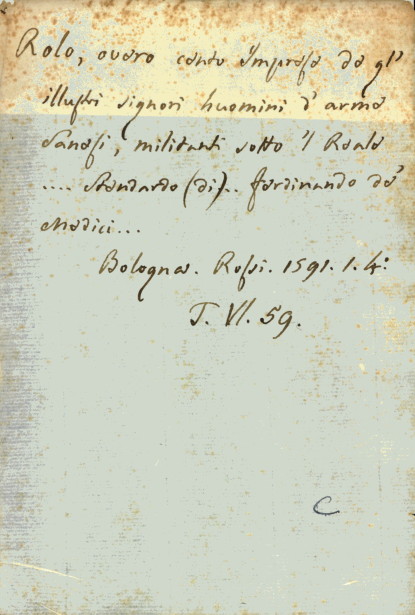 Rolo, overo cento Imprese de gl'
illustri signori huomini d' arme
Sanesi, militanti sotto 'l Reale
.... Stendardo (di).. Ferdinando de'
Medici...
Bologna. Rossi. 1591. 1. 4:
T. VI. 59.
C